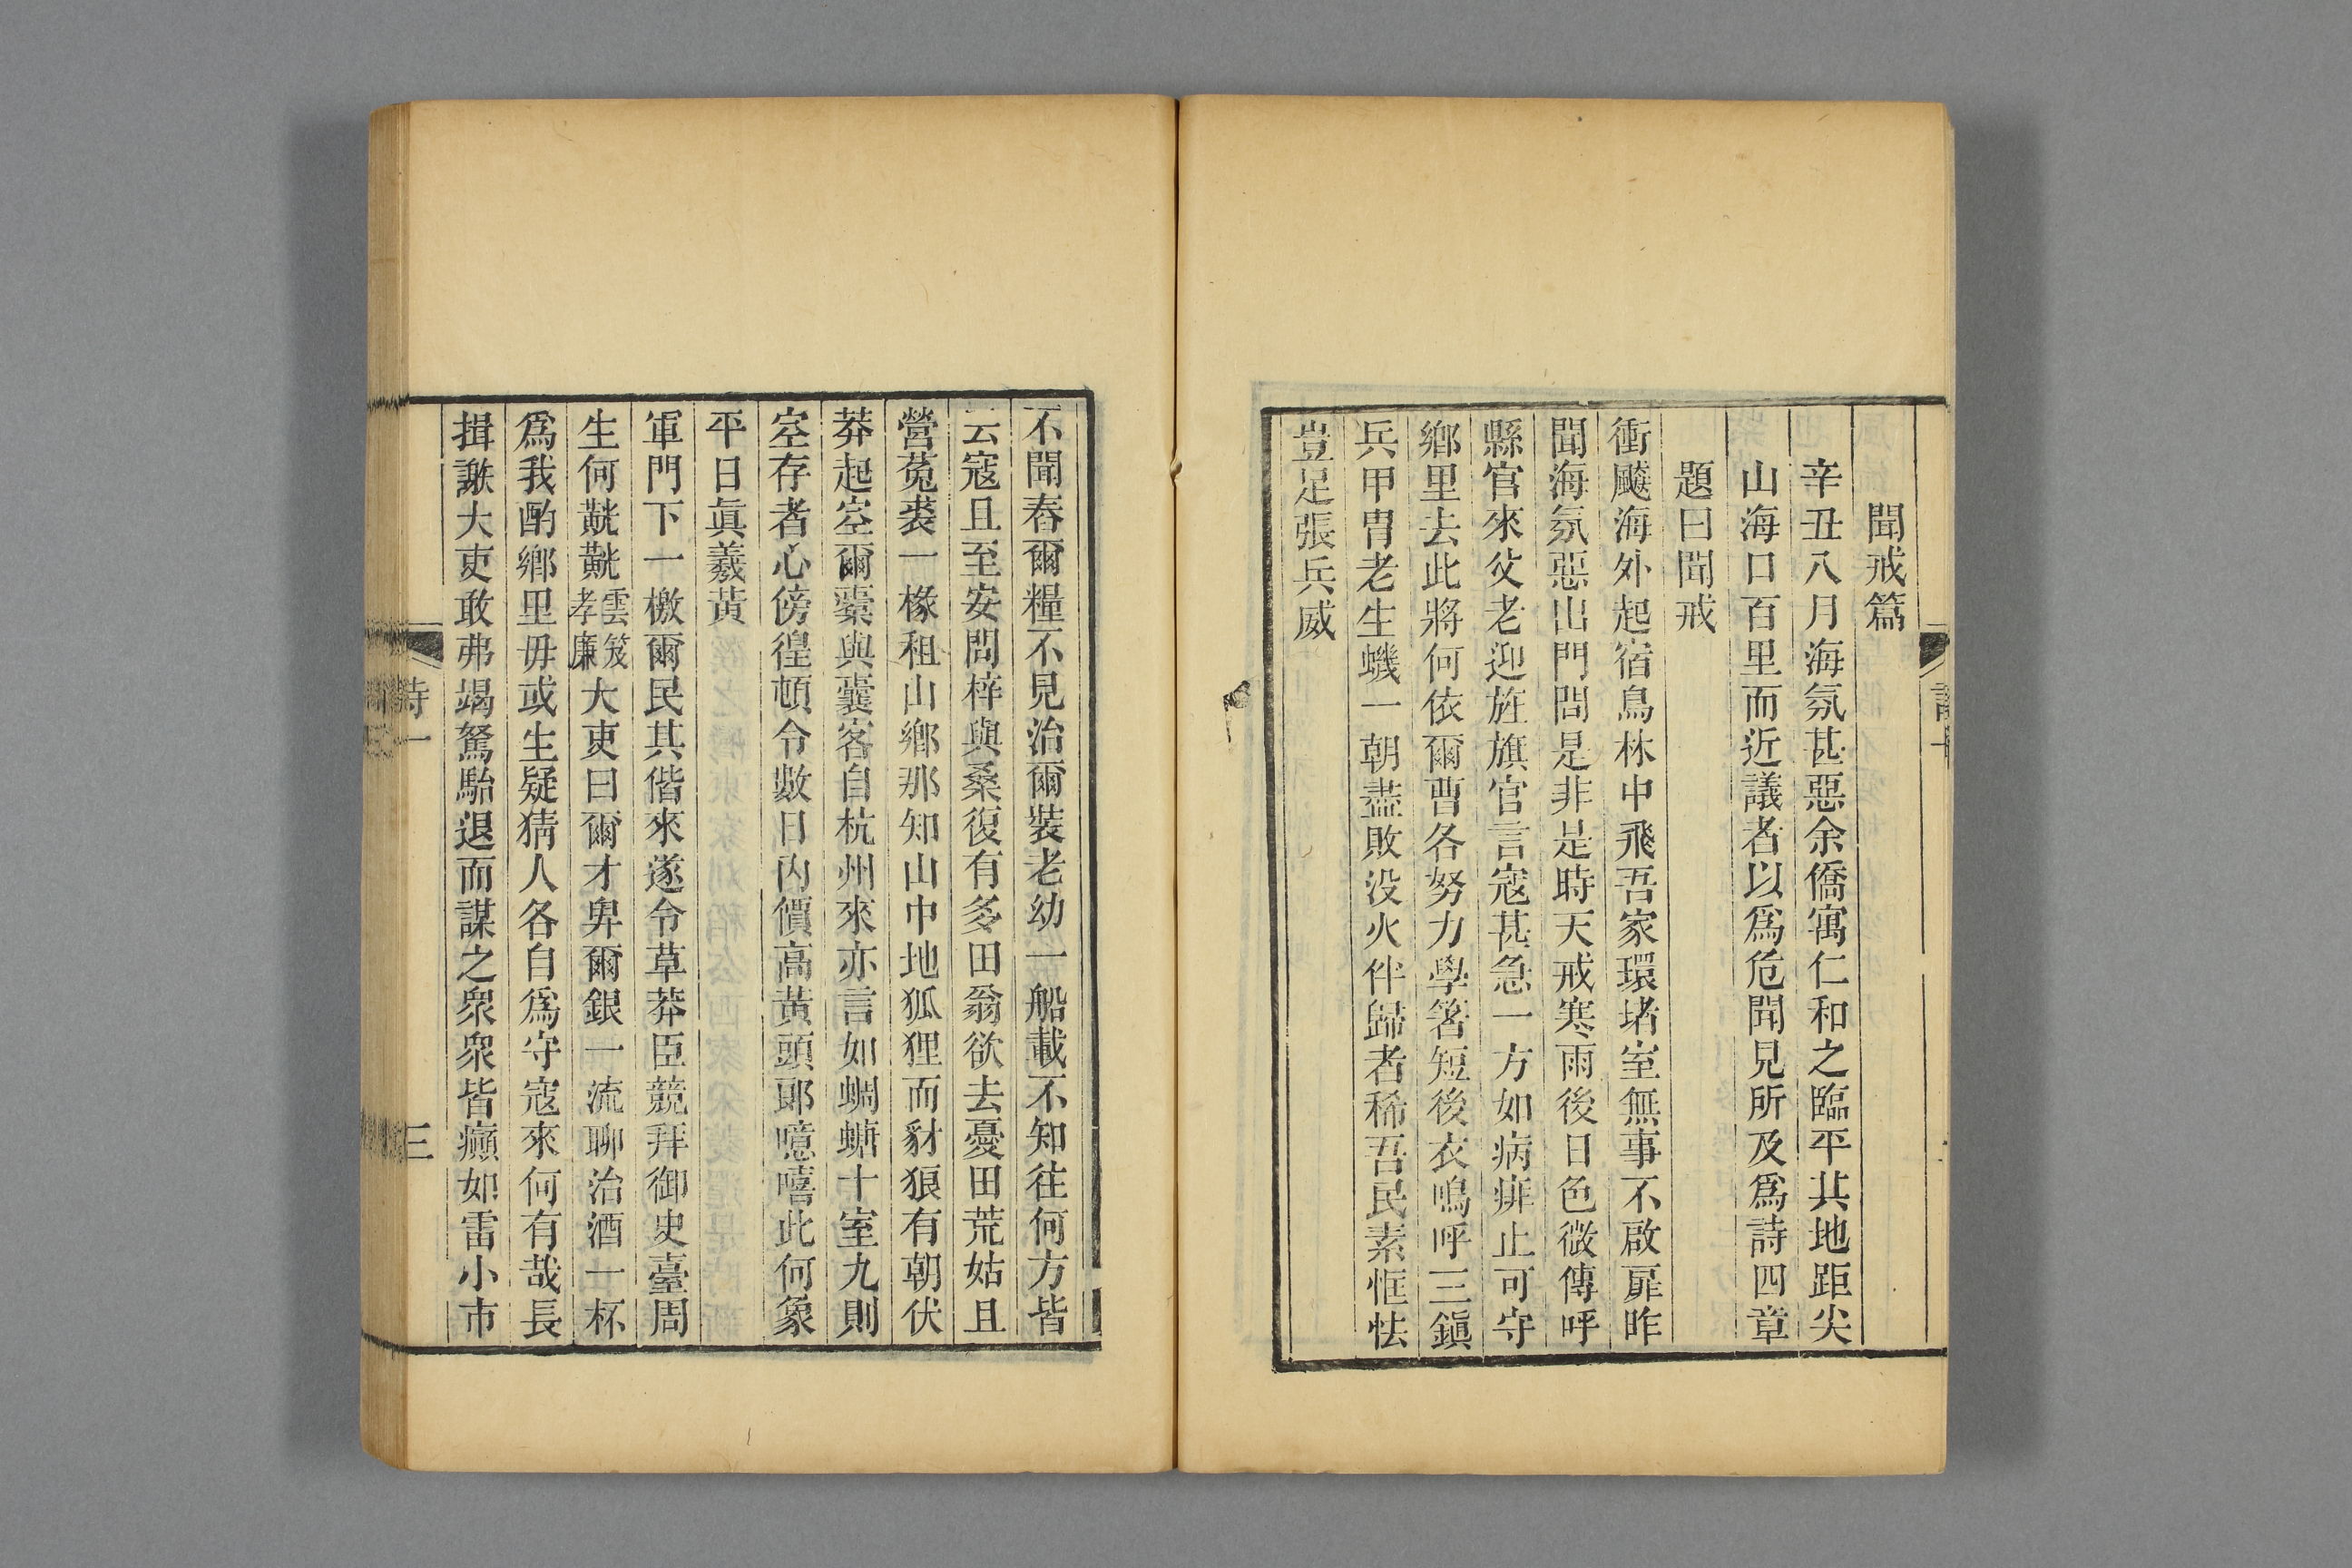 聞戒篇
辛丑八月海氛甚惡余僑寓仁和之臨平其地距尖
山海口百里而近議者以爲危聞見所及爲詩四章
題曰聞戒
衝飇海外起宿鳥林中飛吾家環堵室無事不啟扉昨
聞海氛惡出門問是非是時天戒寒雨後日色微傳呼
縣官來父老迎旌旗官言寇甚急一方如病痱止可守
鄉里去此將何依爾曹各努力學箸短後衣嗚呼三鎭
兵甲胄老生蟣一朝盡敗没火伴歸者稀吾民素恇怯
豈足張兵威
不聞舂爾糧不見治爾裝老幼一船載不知往何方皆
云寇且至安問梓與桑復有多田翁欲去憂田荒姑且
營菟裘一椽租山鄉那知山中地狐狸而豺狼有朝伏
莽起空爾橐與囊客自杭州來亦言如蜩螗十室九則
空存者心傍徨頓令數日內價高黃頭郞噫嘻此何象
平日眞羲黃
軍門下一檄爾民其偕來遂令草莽臣競拜御史臺周
生何觥觥雲笈孝廉大吏曰爾才畀爾銀一流聊治酒一杯
爲我酌鄉里毋或生疑猜人各自爲守寇來何有哉長
揖謝大吏敢弗竭駑駘退而謀之衆衆皆癲如雷小市
詩一
三